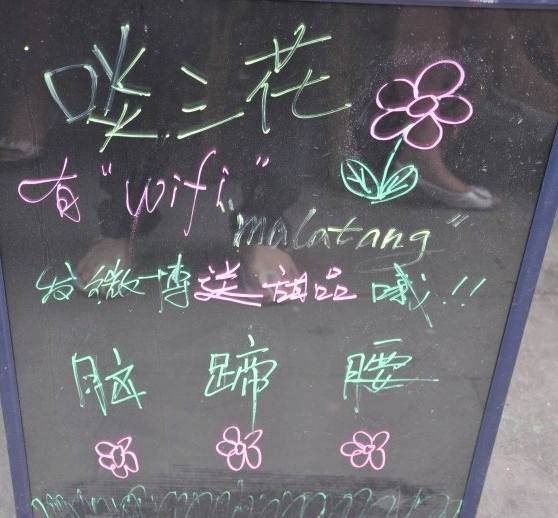 啖三花
有"wifi"
"malatang"
发微博送甜品哦!!
脑 蹄 腰